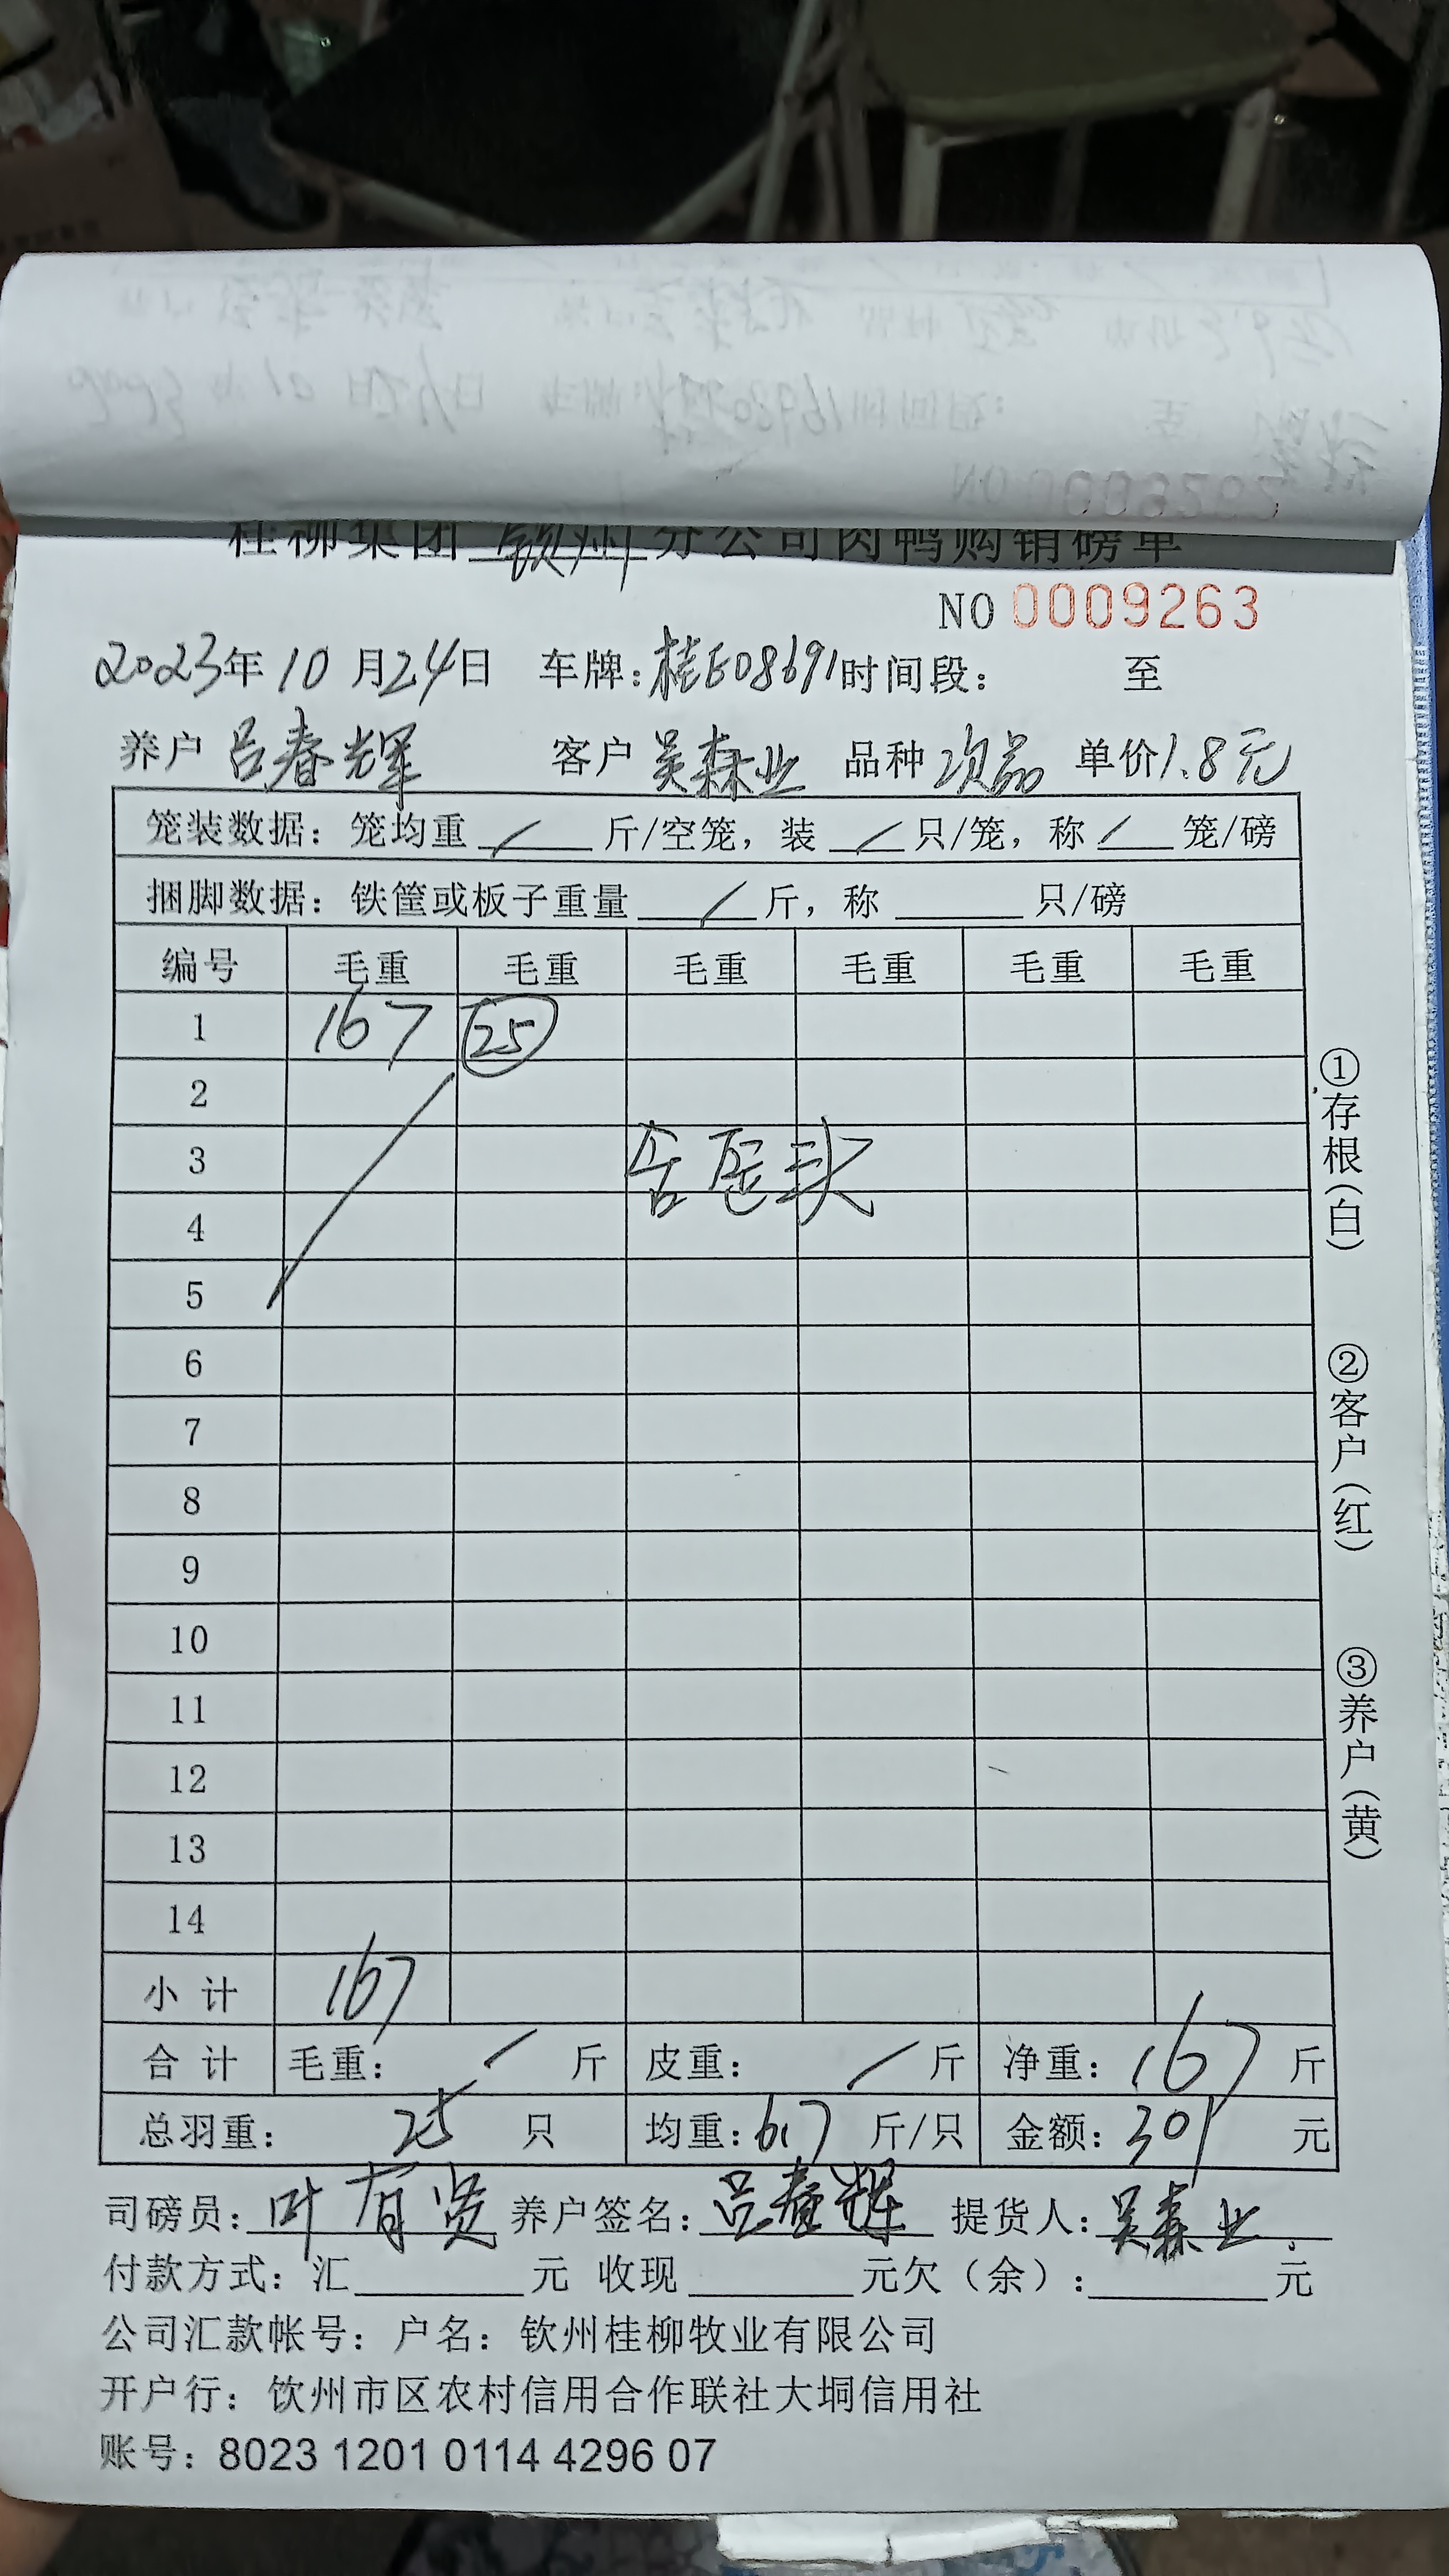 桂柳集团 钦州 分公司肉鸭购销磅单
NO 0009263
2023年10月24日 车牌:桂E08691时间段: 至
养户 吕春辉 客户 吴森业 品种 次品 单价1.8元
笼装数据: 笼均重 / 斤/空笼, 装 / 只/笼, 称 / 笼/磅
捆脚数据: 铁筐或板子重量 / 斤, 称 只/磅
编号 毛重 毛重 毛重 毛重 毛重 毛重
1 167 25
2
3
4
5
6
7
8
9
10
11
12
13
14
小计 167
合计 毛重: / 斤 皮重: / 斤 净重: 167 斤
总羽重: 25 只 均重: 6.7 斤/只 金额: 301 元
司磅员: 叶有贤 养户签名: 吕春辉 提货人: 吴森业
付款方式: 汇 元 收现 元欠(余): 元
公司汇款帐号: 户名: 钦州桂柳牧业有限公司
开户行: 饮州市区农村信用合作联社大垌信用社
账号: 8023 1201 0114 4296 07
①存根(白)
②客户(红)
③养户(黄)